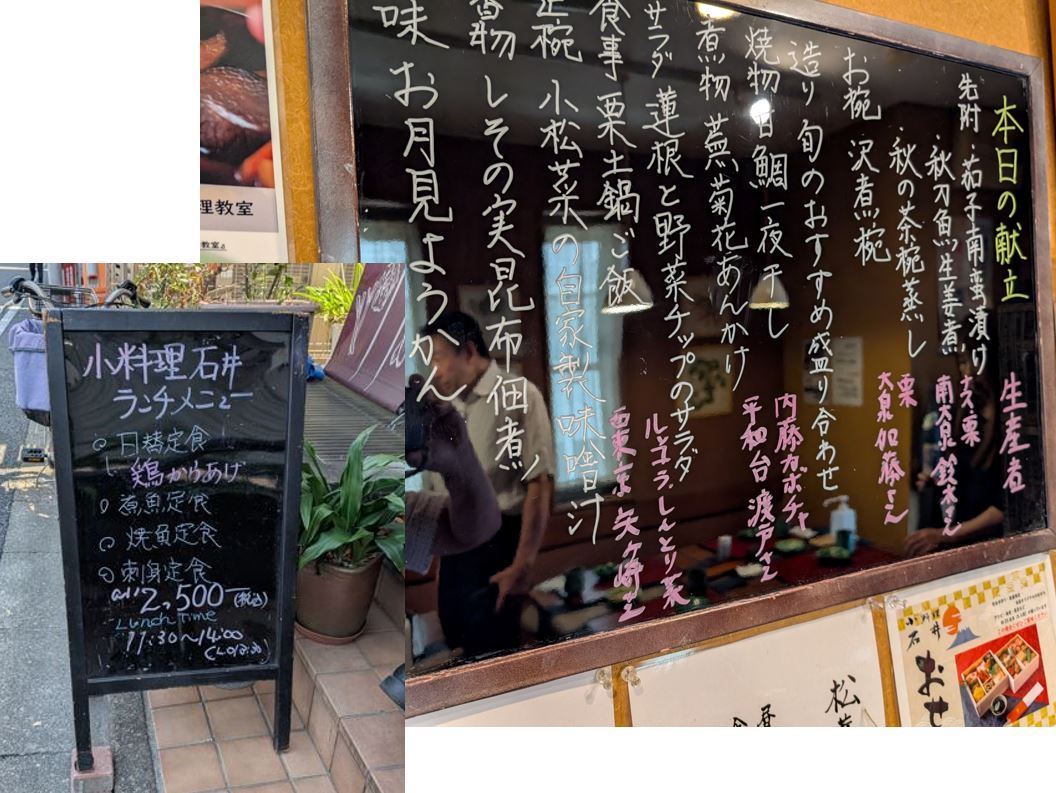 本日の献立
先附 茄子南蛮漬け
秋刀魚生姜煮
秋の茶椀蒸し
お椀 沢煮椀
造り 旬のおすすめ盛り合わせ
焼物 甘鯛一夜干し
煮物 蕪菊花あんかけ
サラダ 蓮根と野菜チップのサラダ
食事 栗土鍋ご飯
椀 小松菜の自家製味噌汁
香物 しその実昆布佃煮
味 お月見ようかん
生産者
南大泉 鈴木さん
栗
大泉 加藤さん
内藤カボチャ
平和台 渡戸さん
ルッコラ しんとり菜
西東京 矢ヶ崎さん
理教室
教室
小料理石井
ランチメニュー
日替定食
鶏からあげ
煮魚定食
焼魚定食
刺身定食
all 2,500- (税込)
Lunch Time
11:30~14:00
小料理
石井
おせ
松